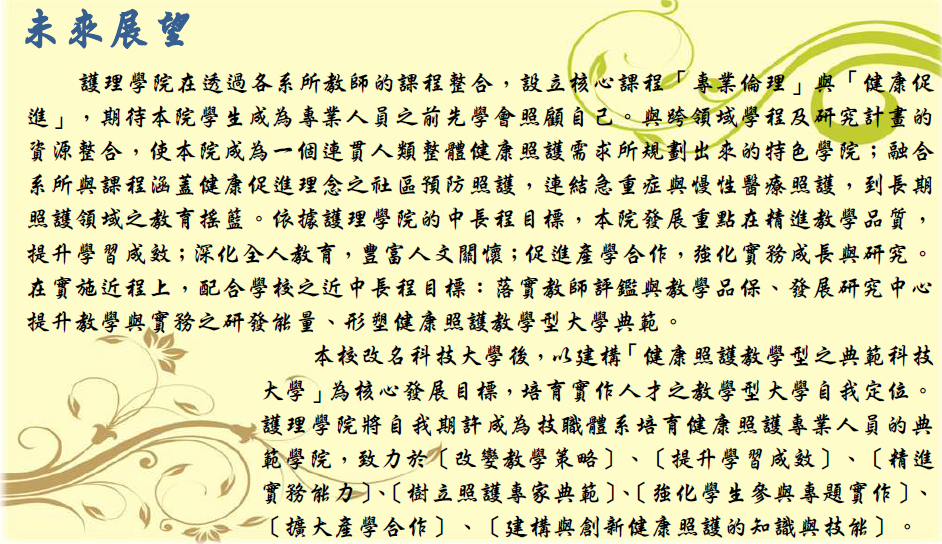 未來展望
護理學院在透過各系所教師的課程整合，設立核心課程「專業倫理」與「健康促
進」，期待本院學生成為專業人員之前先學會照顧自己。與跨領域學程及研究計畫的
資源整合，使本院成為一個連貫人類整體健康照護需求所規劃出來的特色學院；融合
系所與課程涵蓋健康促進理念之社區預防照護，連結急重症與慢性醫療照護，到長期
照護領域之教育搖籃。依據護理學院的中長程目標，本院發展重點在精進教學品質，
提升學習成效；深化全人教育，豐富人文關懷；促進產學合作，強化實務成長與研究。
在實施近程上，配合學校之近中長程目標：落實教師評鑑與教學品保、發展研究中心
提升教學與實務之研發能量、形塑健康照護教學型大學典範。
本校改名科技大學後，以建構「健康照護教學型之典範科技
大學」為核心發展目標，培育實作人才之教學型大學自我定位。
護理學院將自我期許成為技職體系培育健康照護專業人員的典
範學院，致力於〔改變教學策略〕、〔提升學習成效〕、〔精進
實務能力〕、〔樹立照護專家典範〕、〔強化學生參與專題實作〕、
〔擴大產學合作〕、〔建構與創新健康照護的知識與技能〕。